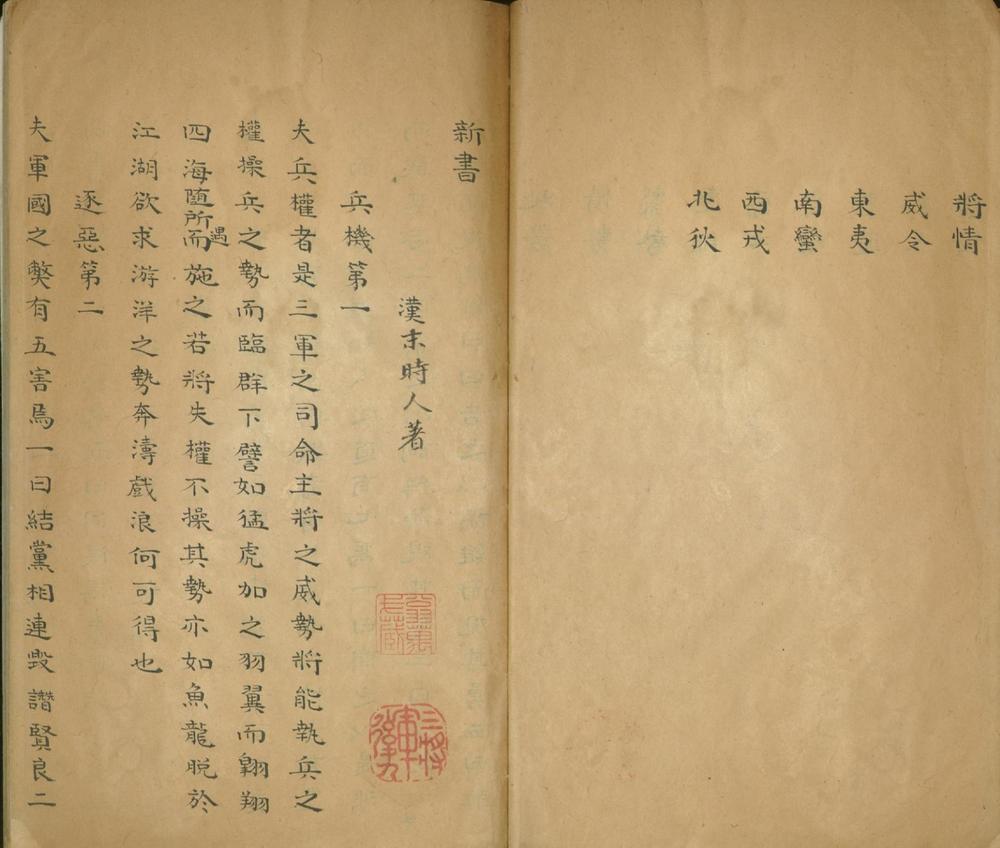 將情
威令
東夷
南蠻
西戎
北狄
新書
漢末時人著
兵機第一
夫兵權者是三軍之司命主將之威勢將能執兵之
權操兵之勢而臨群下譬如猛虎加之羽翼而翺翔
四海隨所遇而施之若將失權不操其勢亦如魚龍脫於
江湖欲求游洋之勢奔濤戲浪何可得也
逐惡第二
夫軍國之獘有五害焉一曰結黨相連毀譖賢良二